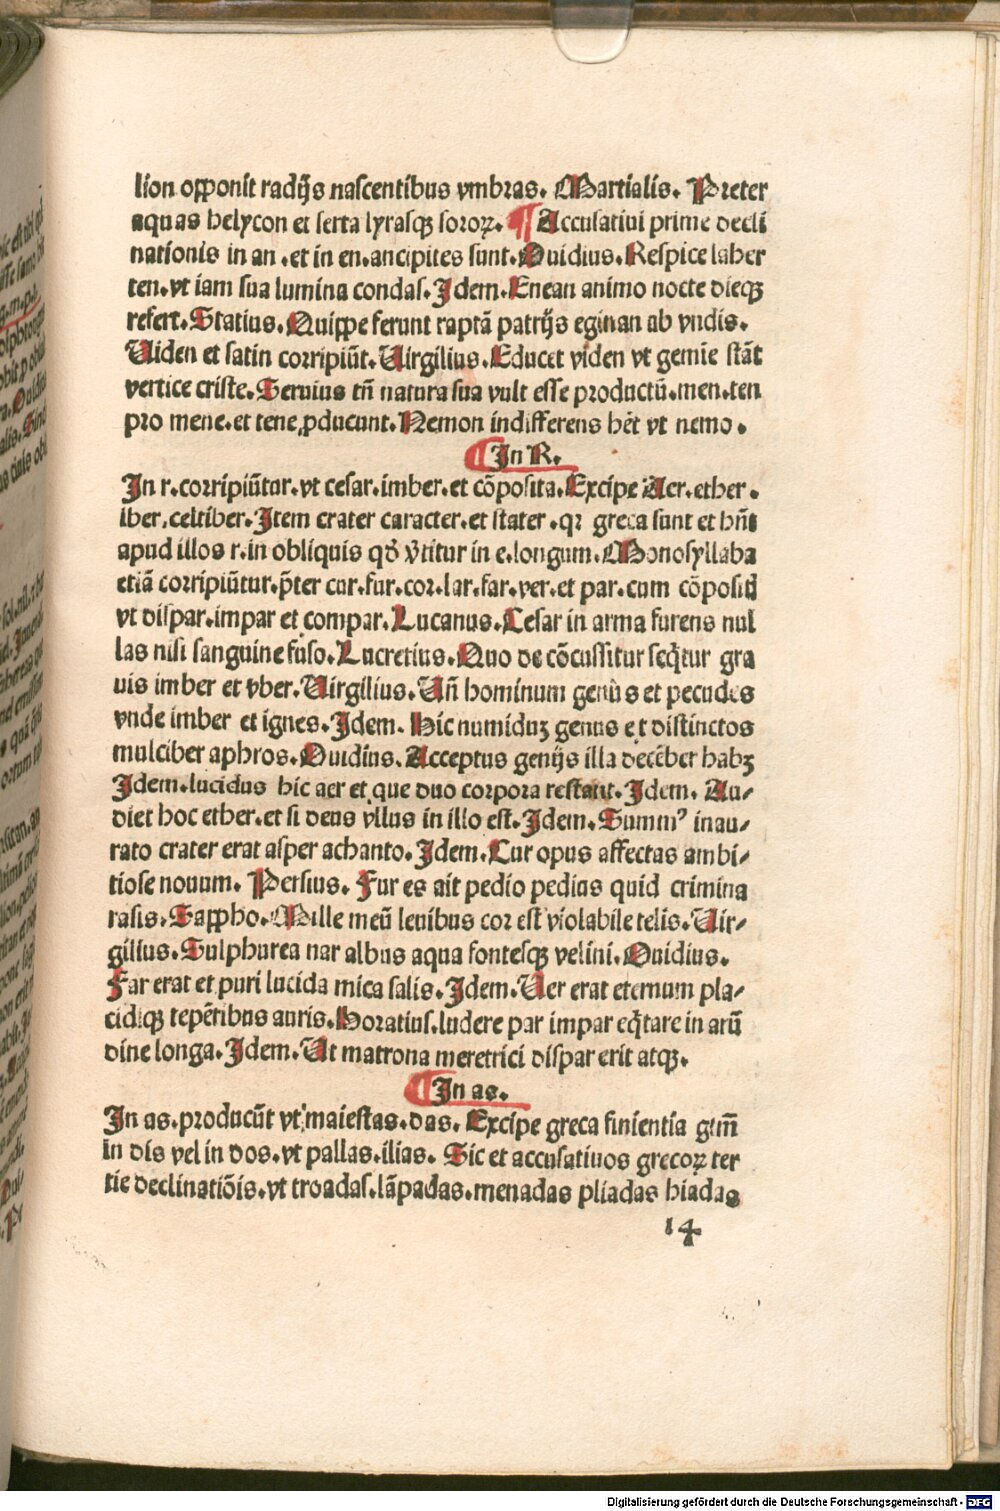 lion opponit radijs nascentibus vmbras. Martialis. Preter
aquas helycon et serta lyrasqꝫ soroꝝ. ¶ Accusatiui prime decli
nationis in an .et in en.ancipites sunt.Ouidius.Respice laher
ten.vt iam sua lumina condas.Idem.Enean animo nocte dieqꝫ
refert.Statius.Quippe ferunt raptā patrijs eginan ab vndis.
Uiden et satin corripiūt.Uirgilius.Educet viden vt gemīe stāt
vertice criste.Seruius tn̄ natura sua vult esse productū.men.ten
pro mene.et tene ꝓducunt.Nemon indifferens hēt vt nemo.
¶ In R.
In r.corripiūtur.vt cesar.imber.et cōposita.Excipe Aer.ether.
iber.celtiber.Item crater caracter.et stater.qꝛ greca sunt et hn̄t
apud illos r.in obliquis qđ v̄titur in e.longum.Monosyllaba
etiā corripiūtur.p̄ter cur.fur.cor.lar.far.ver.et par.cum cōpositꝭ
vt dispar.impar et compar.Lucanus.Cesar in arma furens nul
las nisi sanguine fuso.Lucretius.Quo de cōcussitur seq̄tur gra
uis imber et vber.Uirgilius.Un̄ hominum genus et pecudes
vnde imber et ignes.Idem. Hic numiduꝫ genus et distinctos
mulciber aphros.Ouidius.Acceptus genijs illa decēber habꝫ
Idem.lucidus hic aer et que duo corpora restant.Idem. Au-
diet hoc ether.et si deus vllus in illo est.Idem.Summꝰ inau-
rato crater erat asper achanto.Idem.Cur opus affectas ambi-
tiose nouum. Persius. Fur es ait pedio pedias quid crimina
rasis.Sappho.Mille meū leuibus cor est violabile telis.Uir-
gilius.Sulphurea nar albus aqua fontesqꝫ velini.Ouidius.
Far erat et puri lucida mica salis.Idem.Uer erat eternum pla-
cidiqꝫ tepētibus auris.Horatius.ludere par impar eq̄tare in arū
dine longa.Idem.Ut matrona meretrici dispar erit atqꝫ.
¶ In as.
In as.producūt vt maiestas.das. Excipe greca finientia gtm̄
in dis vel in dos.vt pallas.ilias. Sic et accusatiuos grecoꝝ ter
tie declinatiōis.vt troadas.lāpadas.menadas pliadas hiadas
14
Digitalisierung gefördert durch die Deutsche Forschungsgemeinschaft - DFG